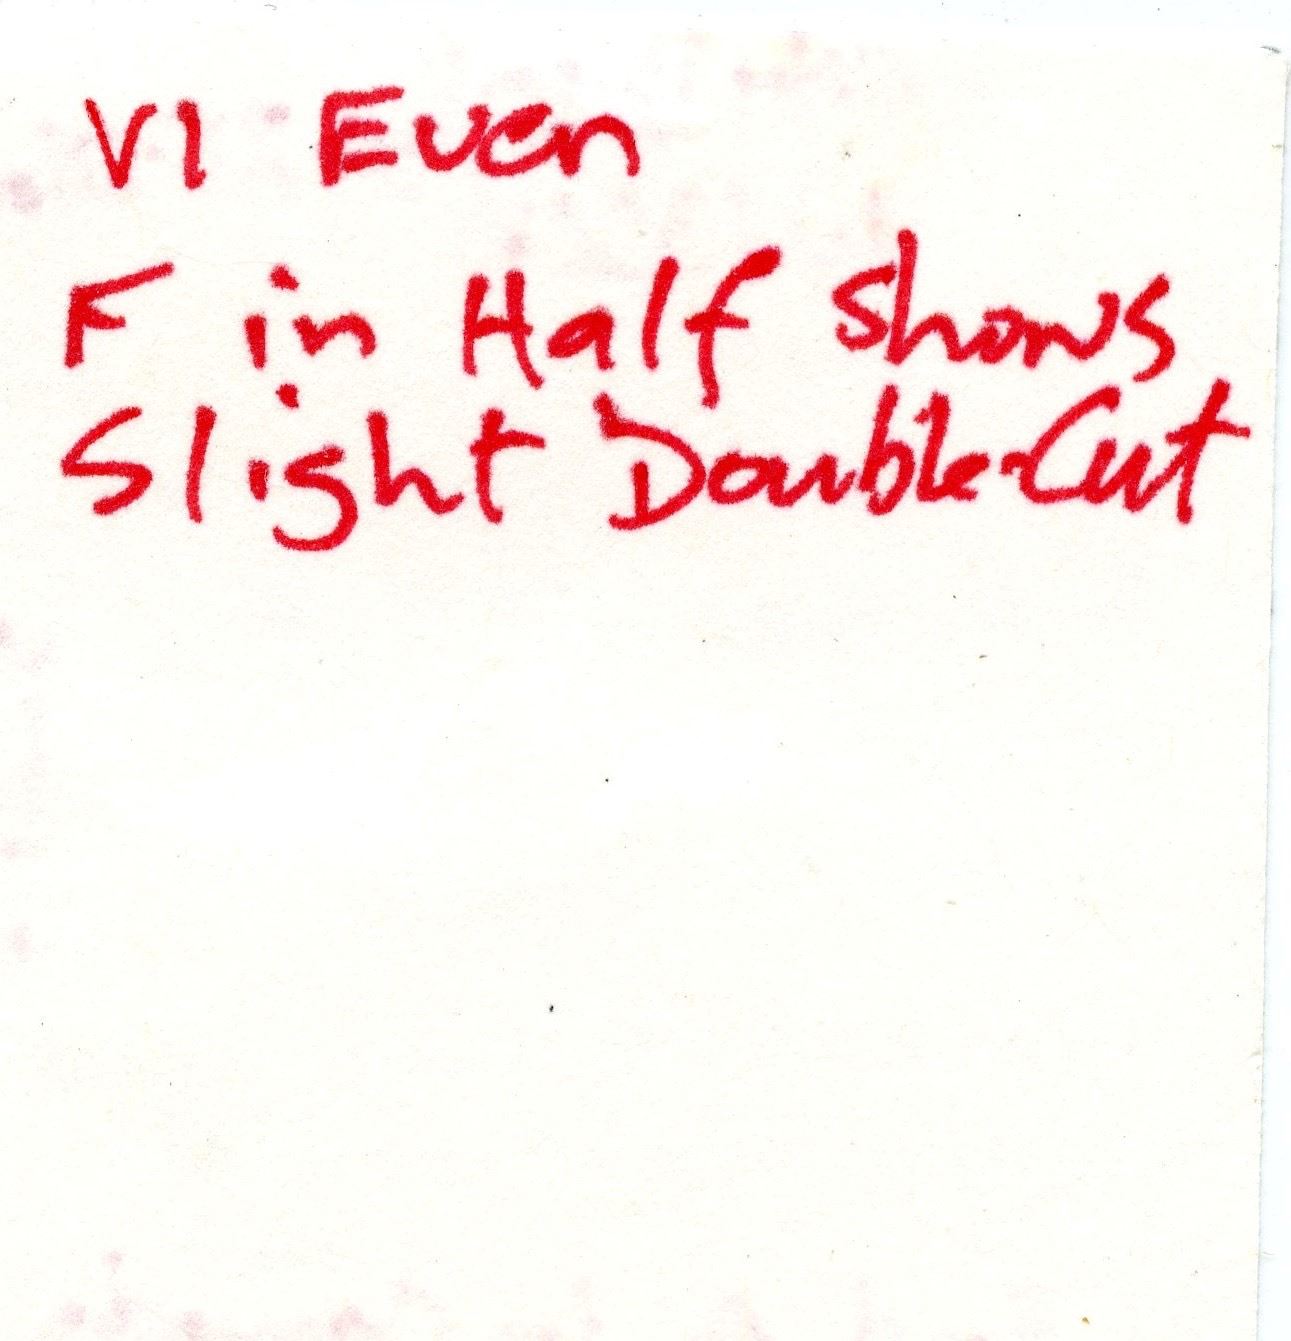 V1 Even
F in Half Shows
Slight Double-Cut